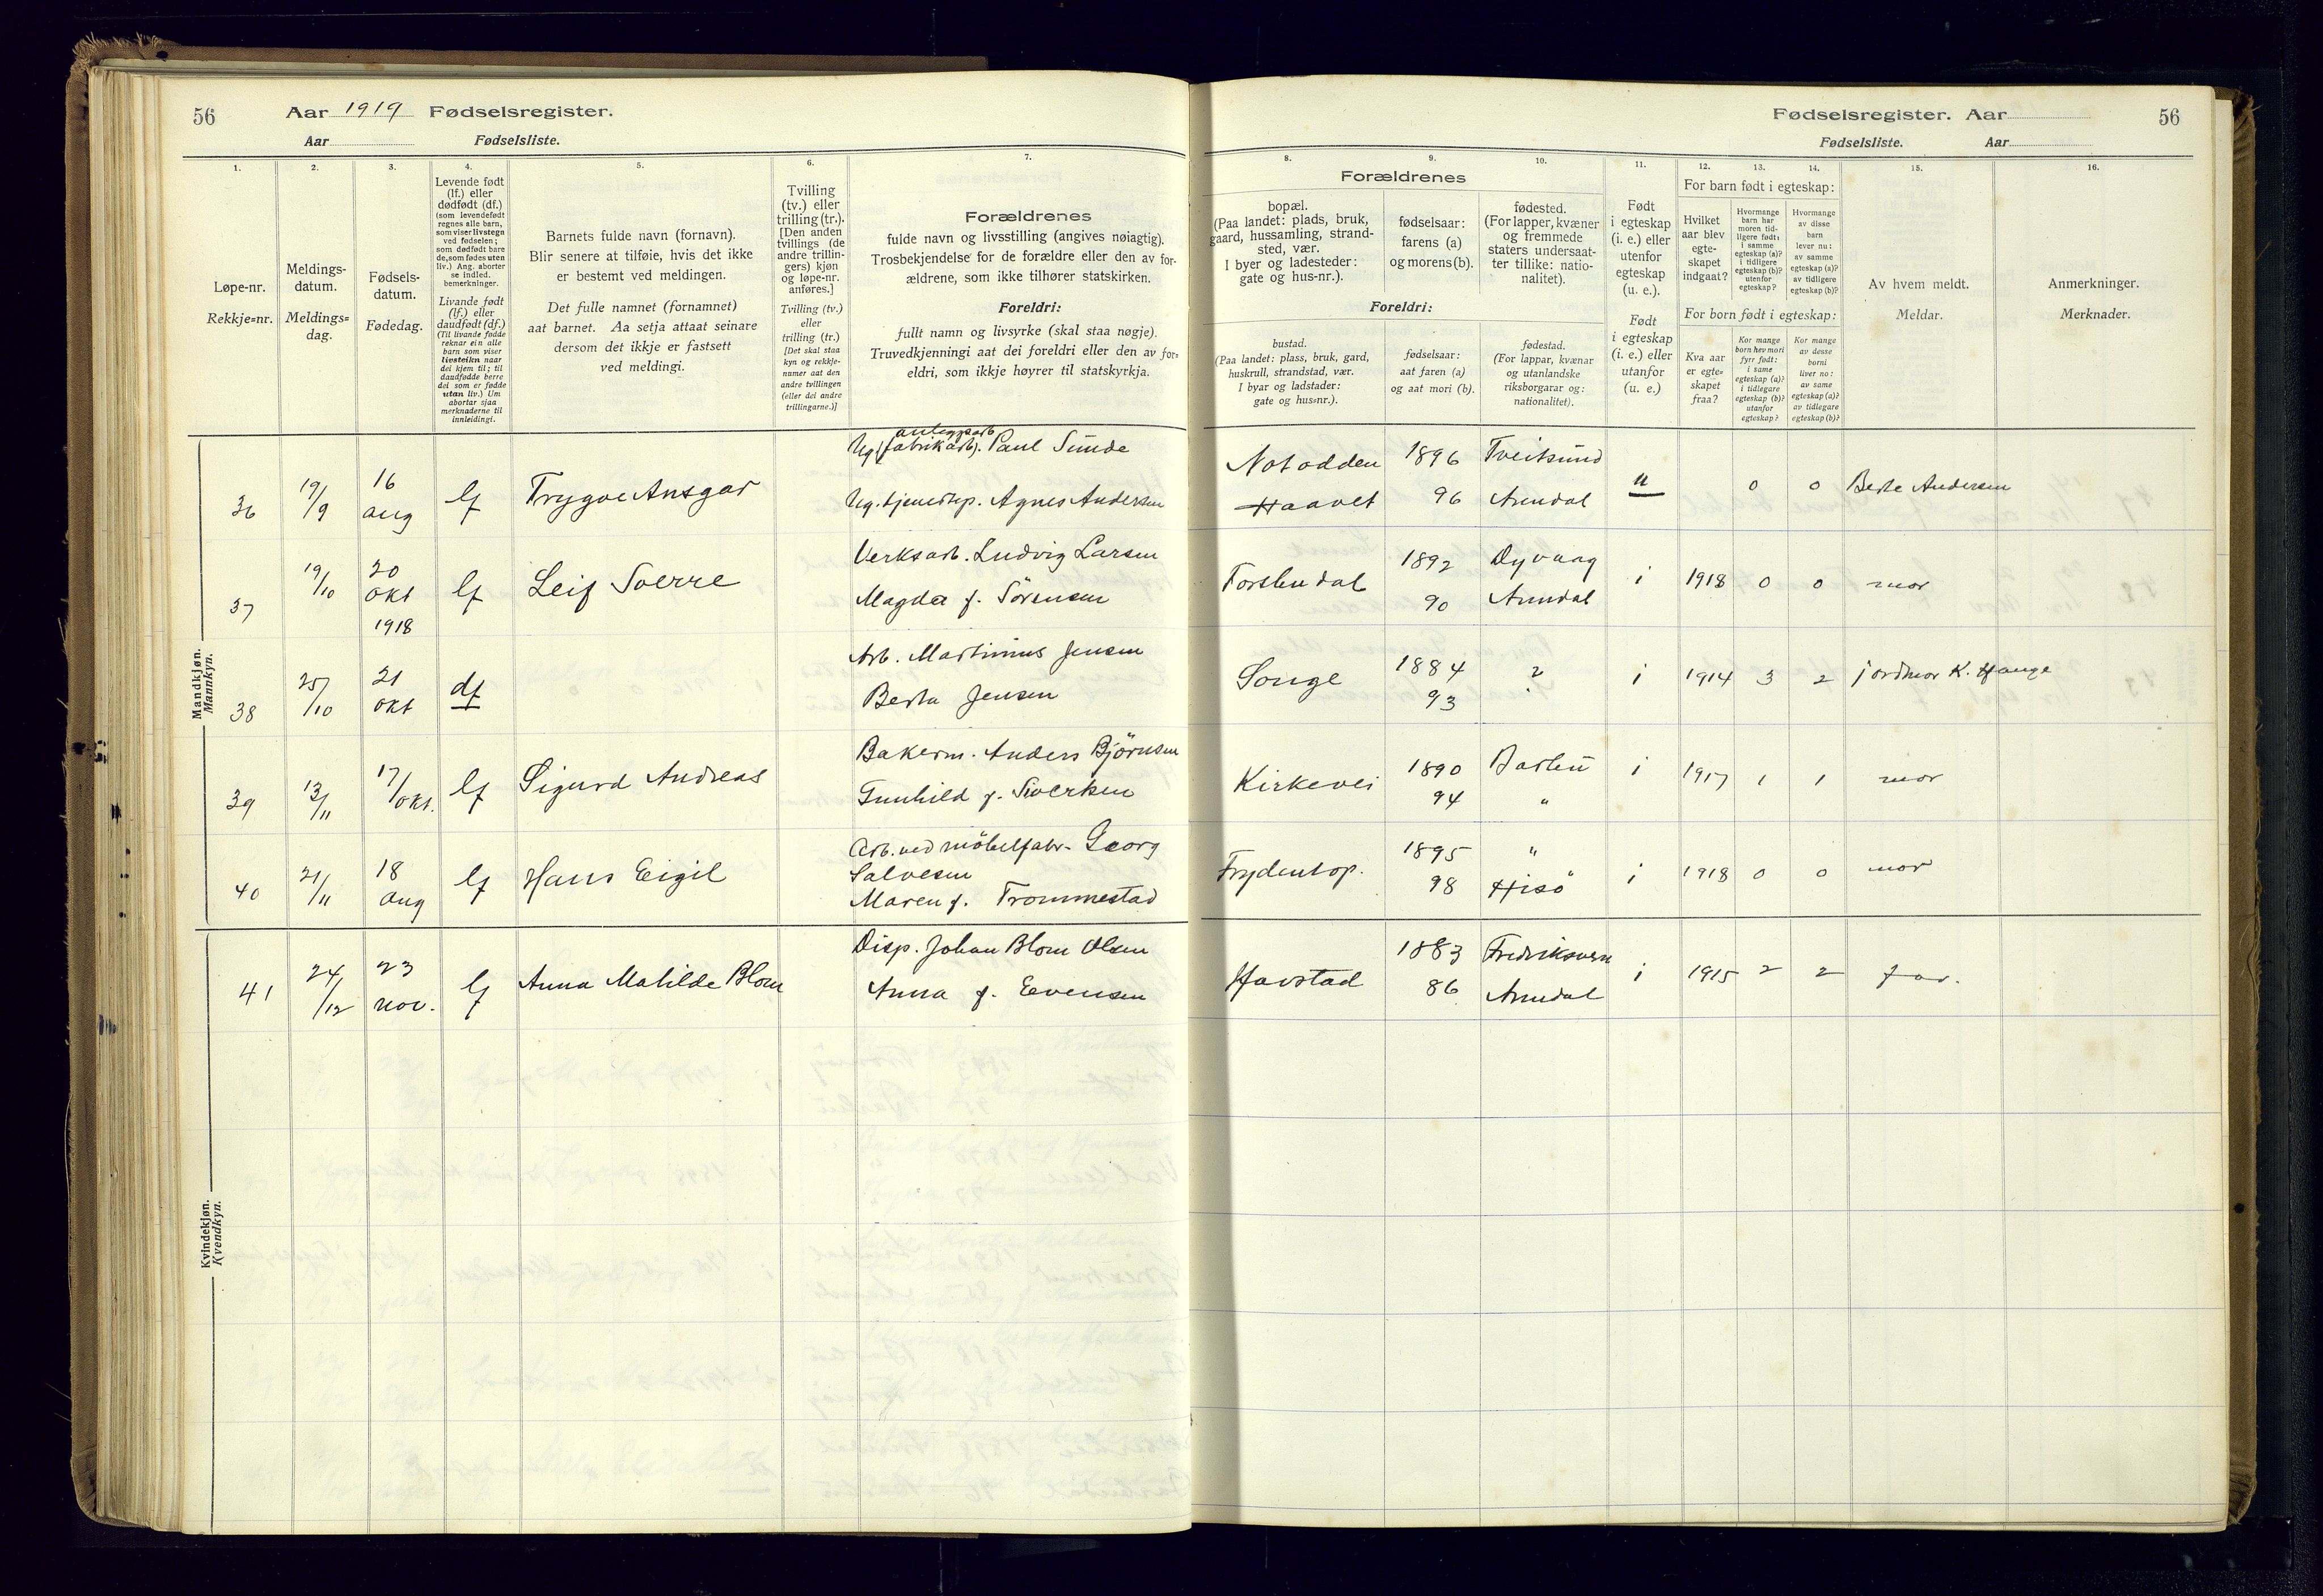 56
Aar 1919 Fødselsregister.
Aar Fødselsliste.
Fødselsregister. Aar
56
Fødselsliste. Aar
1.
Løpe-nr.
Rekkje=nr.
2.
Meldings-
datum.
Meldings=
dag.
3.
Fødsels-
datum.
Fødedag.
4.
Levende født
(lf.) eller
dødfødt (df.)
(som levendefødt
regnes alle barn,
som viser livstegn
ved fødselen;
som dødfødt bare
de, som fødes uten
liv.) Ang. aborter
se indled.
bemerkninger.
Livande født
(lf.) eller
daudfødt (df.)
(Til livande fødde
reknar ein alle
barn som viser
livsteikn naar
dei kjem til; til
daudfødde berre
dei som er fødde
utan liv.) Um
abortar sjaa
merknaderne til
innleidingi.
5.
Barnets fulde navn (fornavn).
Blir senere at tilføie, hvis det ikke
er bestemt ved meldingen.
Det fulle namnet (fornamnet)
aat barnet. Aa setja attaat seinare
dersom det ikkje er fastsett
ved meldingi.
6.
Tvilling
(tv.) eller
trilling (tr.).
[Den anden
tvillings (de
andre trillin-
gers) kjøn
og løpe-nr.
anføres.]
Tvilling (tv.)
eller
trilling (tr.)
[Det skal staa
kyn og rekkje-
numer aat den
andre tvillingen
(eller dei andre
trillingarne.)]
7.
Forældrenes
fulde navn og livsstilling (angives nøiagtig).
Trosbekjendelse for de forældre eller den av for-
ældrene, som ikke tilhører statskirken.
Foreldri:
fullt namn og livsyrke (skal staa nøgje).
Truvedkjenningi aat dei foreldri eller den av for=
eldri, som ikkje høyrer til statskyrkja.
Forældrenes
8.
bopæl.
(Paa landet: plads, bruk,
gaard, hussamling, strand-
sted, vær.
I byer og ladesteder:
gate og hus-nr.).
9.
fødselsaar:
farens (a)
og morens (b).
10.
fødested.
(For lapper, kvæner
og fremmede
staters undersaat-
ter tillike: natio-
nalitet).
Foreldri:
bustad.
(Paa landet: plass, bruk, gard,
huskrull, strandstad, vær.
I byar og ladstader:
gate og hus=nr.).
fødselsaar:
aat faren (a)
og aat mori (b).
fødestad.
(For lappar, kvænar
og utanlandske
riksborgarar og:
nationalitet).
11.
Født
i egteskap
(i. e.) eller
utenfor
egteskap
(u. e.).
Født
i egteskap
(i. e.) eller
utanfor
(u. e.)
12. 13. 14.
For barn født i egteskap:
Hvilket
aar blev
egte-
skapet
indgaat?
Hvormange
barn har
moren tid-
ligere født:
i samme
egteskap (a)?
i tidligere
egteskap (b)?
utenfor
egteskap?
Hvormange
av disse
barn
lever nu:
av samme
egteskap (a)?
av tidligere
egteskap (b)?
For born født i egteskap:
Kva aar
er egte=
skapet
fraa?
Kor mange
born hev mori
fyrr født:
i same
egteskap (a)?
i tidlegare
egteskap (b)?
utanfor
egteskap?
Kor mange
av desse
borni
liver no:
av same
egteskap (a)?
av tidlegare
egteskap (b)?
15.
Av hvem meldt.
Meldar.
16.
Anmerkninger.
Merknader.
Mandkjøn.
Mannkyn.
anleggsarb
Ug. (fabrikarb). Paul Sunde Notodden 1896 Tveitsund
36 19/9 16 aug lf Trygve Ansgar Ug. tjenestep. Agnes Andersen Haavet 96 Arendal u 0 0 Berte Andersen
Verksarb. Ludvig Larsen 1892 Dyvaag
37 19/10 20 okt 1918 lf Leif Sverre Magda f. Sörensen Torsbudal 90 Arendal i 1918 0 0 mor
Arb. Martinius Jensen 1884
38 25/10 21 okt df Berta Jensen Songe 93 ? i 1914 3 2 jordmor K. Hauge
Bakerm. Anders Björnsen 1890 Barbu
39 13/11 17/okt. lf Sigurd Andreas Gunhild f. Siverksen Kirkevei 94 " i 1917 1 1 mor
Arb. ved möbelfabr. Georg 1895 "
Salvesen
40 21/11 18 aug lf Hans Eigil Maren f. Trommestad Frydentop. 98 Hisö i 1918 0 0 mor
Kvindekjøn.
Kvendkyn.
Disp. Johan Blom Olsen 1883 Fredriksvern
41 24/12 23 nov. lf Anna Matilde Blom Anna f. Evensen Havstad 86 Arendal i 1915 2 2 far.